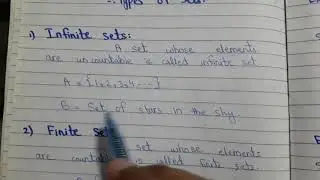 Types of
1) Infinite sets:
A set whose elements
are uncountable is called infinite set
A = {1, 2, 3, 4, ...}
B = Set of stars in the sky.
2) Finite set
set whose elements
are countable is called finite sets